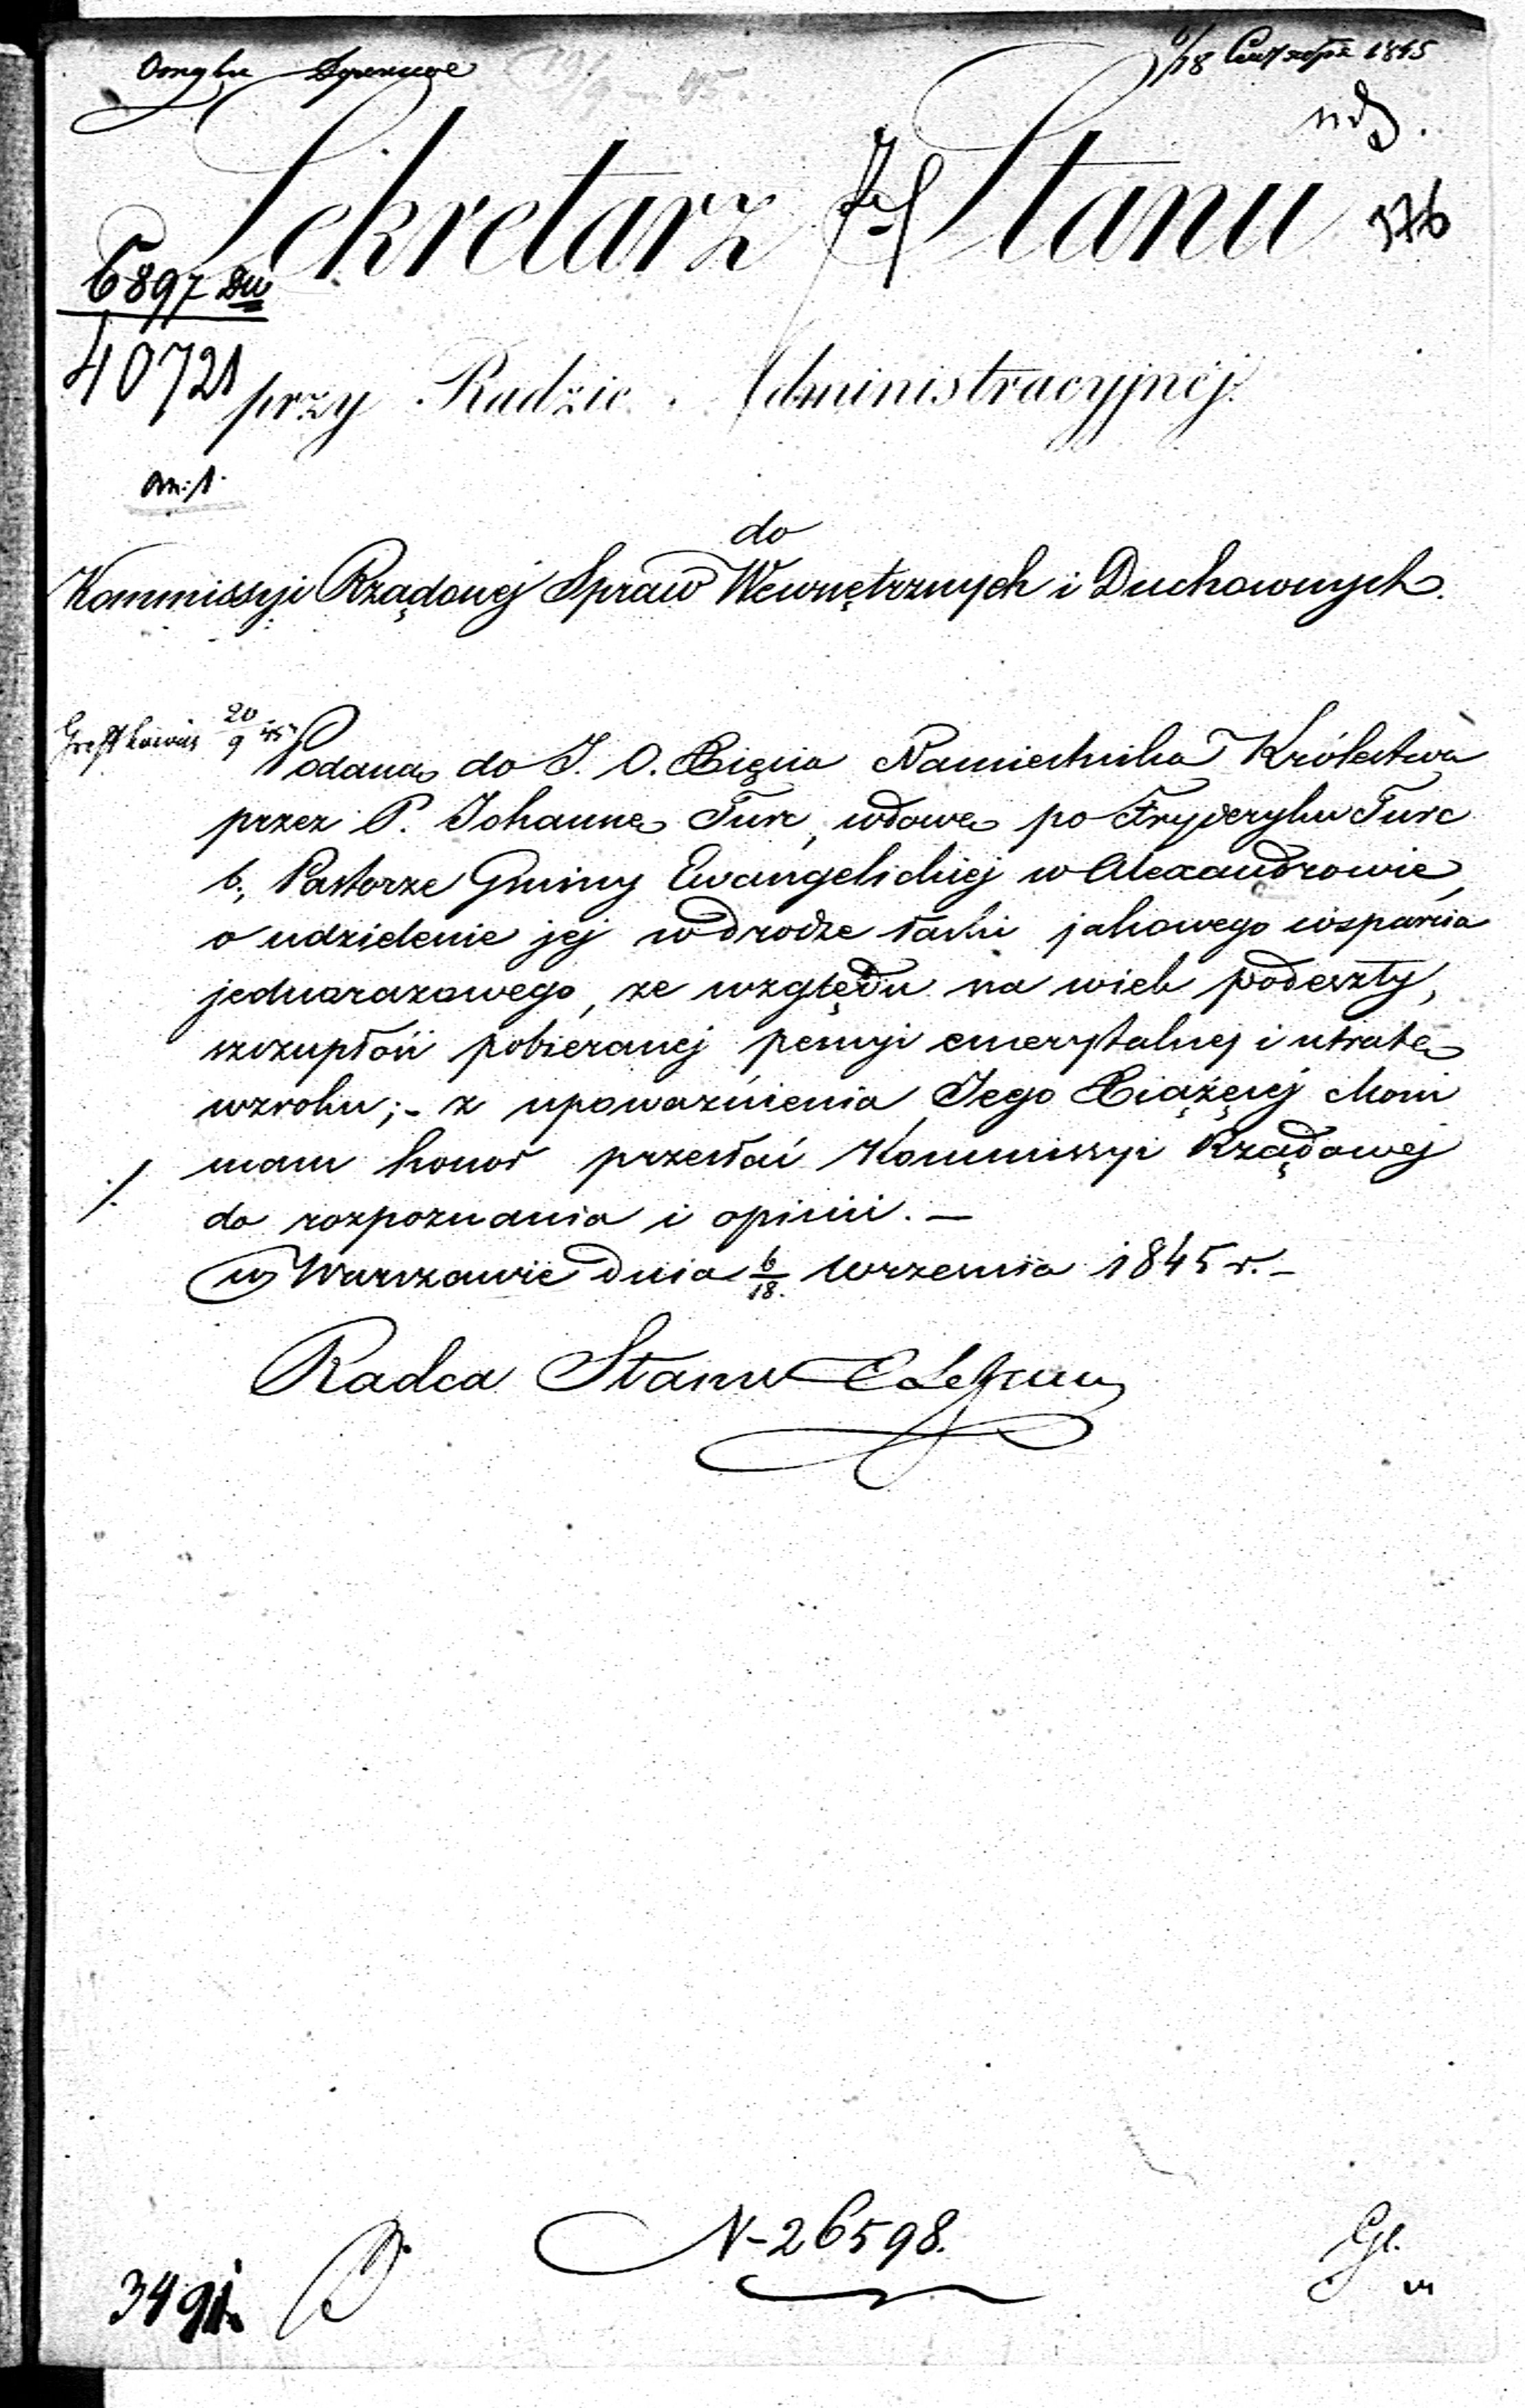 6/18 1845
19/9 - 45
Sekretarz Stanu
376
6897
40721
przy Radzie Administracyjnéj.
do
Kommissyi Rządowej Spraw Wewnętrznych i Duchownych.
20/9 45
Podaną do J. O. Xięcia Namiestnika Królestwa
przez P. Johannę Turc, wdowę po Fryderyku Turc
b. Pastorze Gminy Ewangelickiej w Alexandrowie,
o udzielenie jej w drodze łaski jakowego wsparcia
jednorazowego, ze względu na wiek podeszły,
szczupłość pobieranej pensyi emerytalnej i utratę
wzroku; - z upoważnienia Jego Xiążęcej Mości
./. mam honor przesłać Kommissyi Rządowej
do rozpoznania i opinii. —
w Warszawie dnia 6/18. Września 1845 r. -
Radca Stanu
N- 26598.
3491